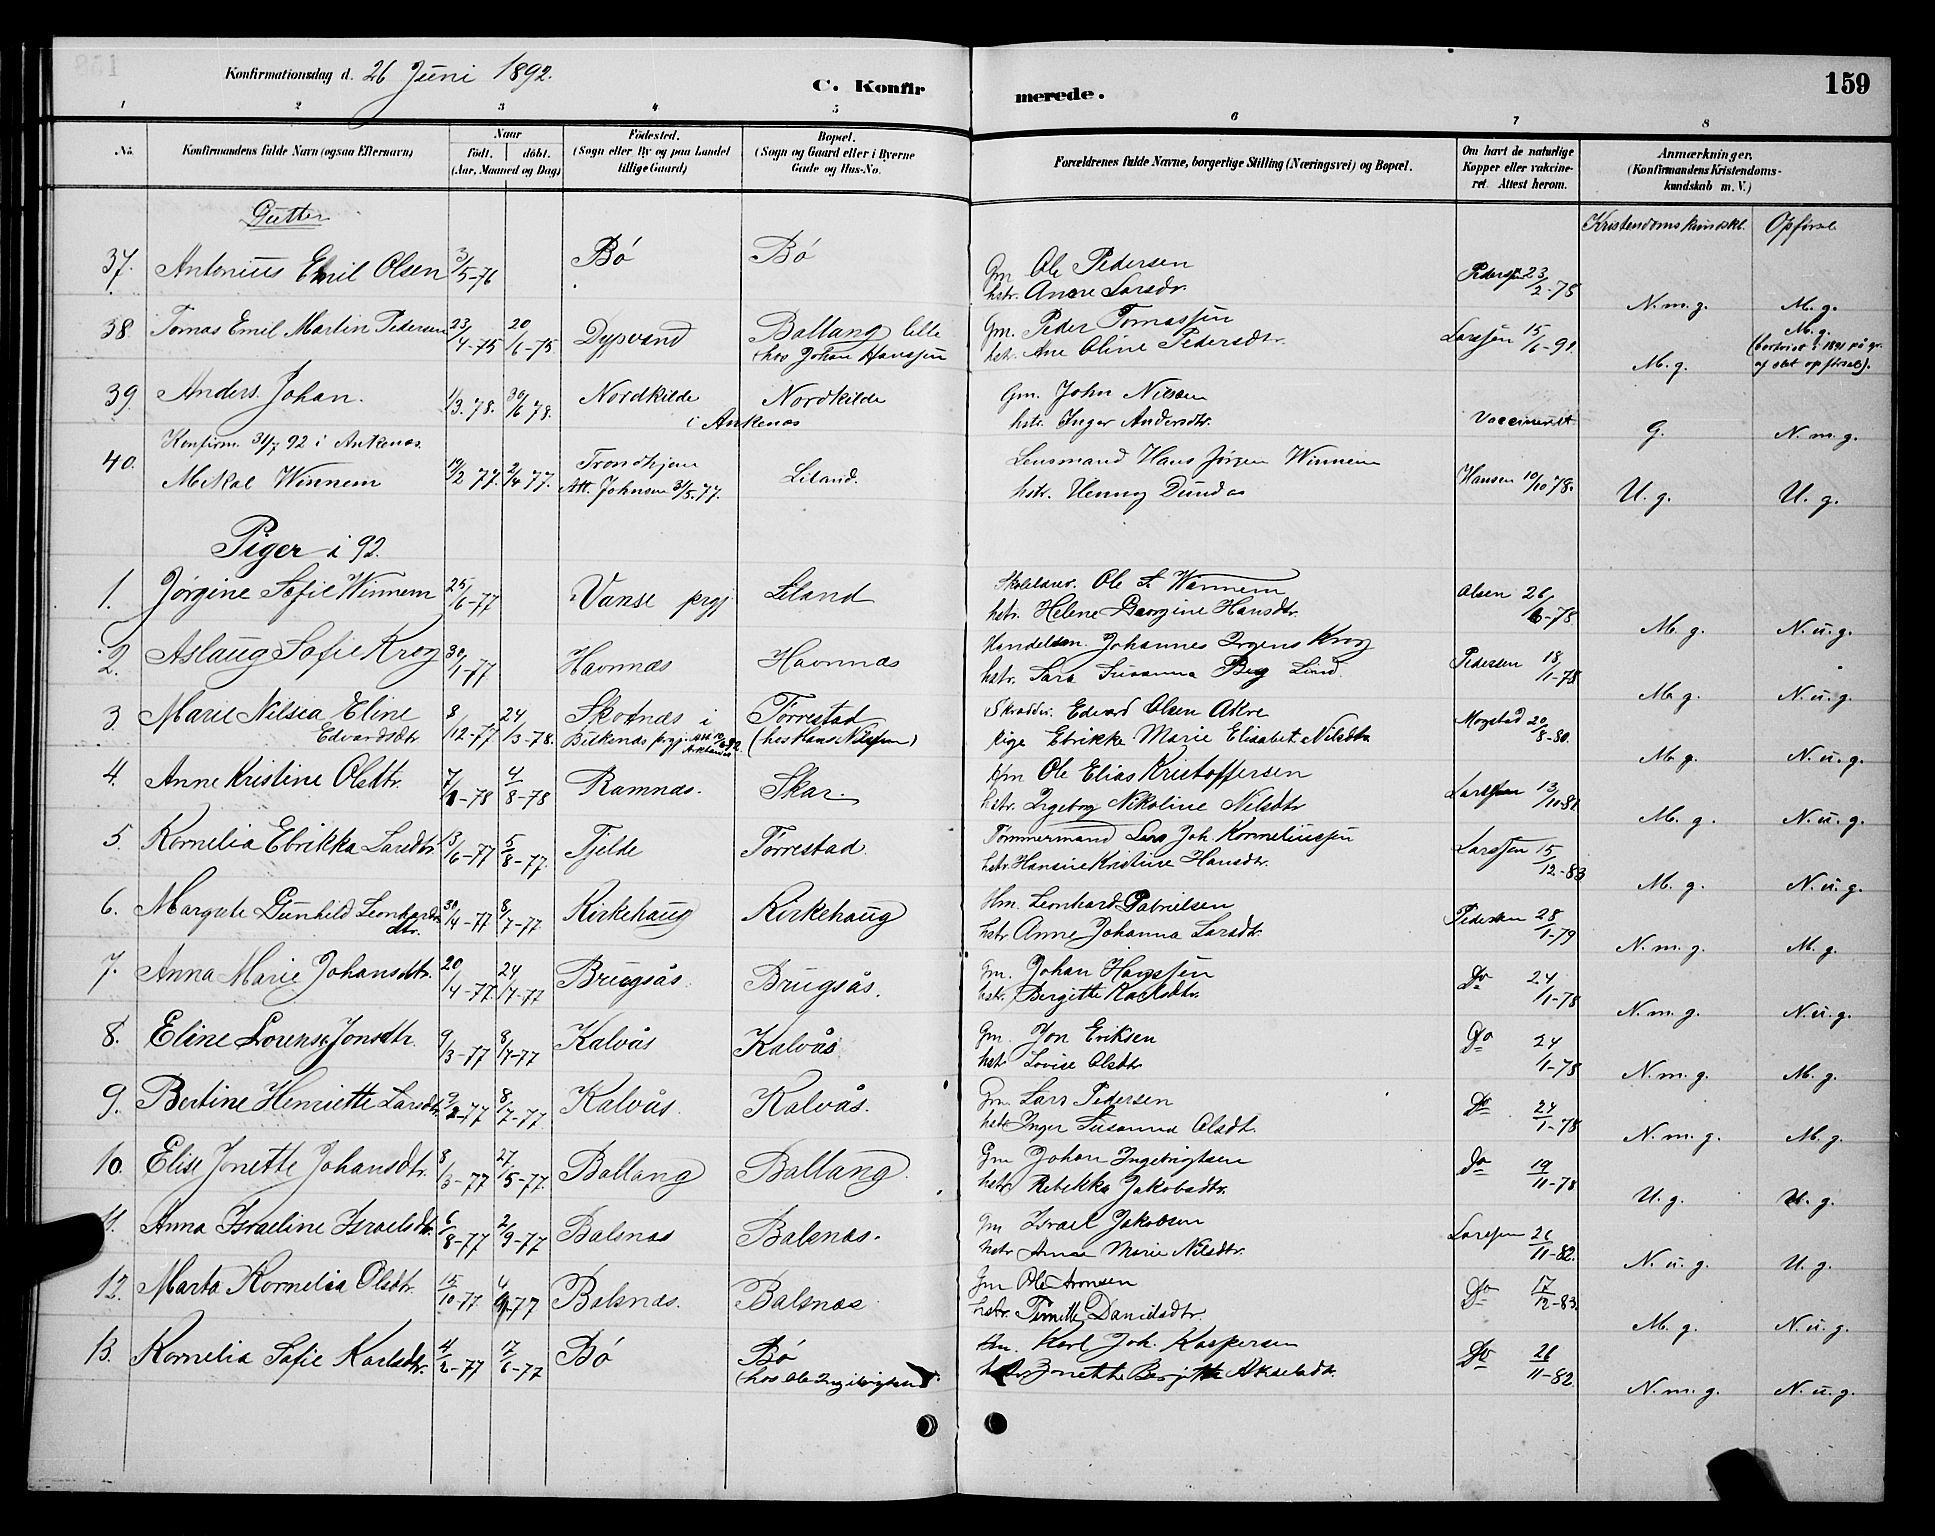 Konfirmationsdag d. 26 Juni 1892.
C. Konfirmerede.
159
1 2 3 4 5 6 7 8
No. Konfirmandens fulde Navn (ogsaa Efternavn) Naar födt. döbt. (Aar, Maaned og Dag) Födested. (Sogn eller By og paa Landet tillige Gaard) Bopæl. (Sogn og Gaard eller i Byerne Gade og Hus-No. Forældrenes fulde Navne, borgerlige Stilling (Næringsvei) og Bopæl. Om havt de naturlige Kopper eller vakcineret. Attest herom. Anmærkninger. (Konfirmandens Kristendomskundskab m. V.)
Gutter Kristendomskundskb. Opførsel
37. Antonius Emil Olsen 3/5-76 Bö Bö Gm Ole Pedersen
hstr. Ane Larsdr. Pedersen 23/2-78 N. m. g. M. g.
38 Tomas Emil Martin Pedersen 23/4-75 20/6-75 Dypvand Ballang lille
hos Johan Hanssen Gm. Peder Tomassen
hstr. Ane Oline Pedersdtr. Larssen 15/6-91 M. g. M. g.
(bortvist i 1891 på gr.
af slet opførsel).
39. Anders Johan. 1/3.78. 30/6 78. Nordkilde Nordkilde
i Ankenes Gm. John Nilsen
hstr. Inger Andersdtr. Vaccineret G. N. m. g.
Konfirm 31/7 92 i Ankenes
40. Mikal Winnem 19/2 77. 2/4 77. Trondhjem
Att. Johnsen 3/5.77. Liland. Lensmand Hans Jörgen Winnem
hstr. Henny Dundas Hansen 10/10 78. U. g. U. g.
Piger i 92.
1. Jörgine Sofie Winnem 25/6-77 Vanse prgj Liland Skolelærer. Ole S. Winnem
hstr. Helene Georgine Hansdtr. Olsen 26/6-78 M. g. N. u. g.
2. Aslaug Sofie Krog 30/1-77 Havnnæs Havnnæs Handelsm. Johannes Irgens Krog
hstr. Sara Susanna Lind. Pedersen 18/1-78 M. g. N. u. g.
3 Marie Nilsea Eline
Edvardsdtr 8/12-77 24/3-78. Skotnæs i
prgj. Torrestad
(hos Hans Nilssen) Skrædder. Edvard Olsen
Pige Ebrikke Marie Elisabet Nilsdtr. Mogstad 20/8-80. M. g. N. u. g.
4. Anne Kristine Olsdtr. 7/1-78 4/8-78 Ramnæs. Skar. Hm Ole Elias Kristoffersen
hstr. Ingeborg Nikoline Nilsdtr Larssen 13/10-81. M. g. N. u. g.
5. Kornelia Ebrikka Larsdtr. 13/6-77 5/8-77. Tjelde Torrestad. Tömmermand Lars Joh. Korneliussen
hstr. Hansine Kristine Hansdtr. Larssen 15/12-83 M. g. N. u. g.
6. Margrete Gunhild Leonhards
dtr. 30/4-77 8/7-77. Kirkehaug Kirkehaug Hm. Leonhard Gabrielsen
hstr Anne Johanna Larsdtr. Pedersen 28/1-79 N. m. g. M. g.
7. Anna Marie Johansdtr. 20/4-77. 24/4-77 Brugsås. Brugsås. Gm. Johan Hanssen
hstr. Bergitte Karlsdtr. Do 24/1-78 N. m. g. N. u. g.
8. Eline Lorense Jonsdtr. 9/3-77 8/4-77 Kalvås Kalvås Gm. Jon Eriksen
hstr Lovise Olsdtr Do 24/1-78 N. m. g. M. g.
9. Bertine Henriette Larsdtr 9/2-77 8/7-77 Kalvås. Kalvås. Gm. Lars Pedersen
hstr Inger Susanna Olsdtr. Do 24/1-78 N. m. g. M. g.
10. Elise Jonette Johansdtr. 8/3-77 27/5-77. Ballang Ballang Gm Johan Ingebrigtsen
hstr. Rebekka Jakobsdtr. Do 19/11-78 U. g. U. g.
11. Anna Israeline Israelsdtr. 6/8-77 2/9-77 Balsnæs Balsnæs. Gm Israel Jakobsen
hstr Anne Marie Nilsdtr. Larssen 26/11-82. N. u. g. U. g.
12. Marta Kornelia Olsdtr. 15/10-77. Balsnæs. Balsnæs Gm Ole Aronsen
hstr. Danielsdtr. Do 17/12-83. M. g. N. u. g.
13. Kornelia Sofie Karlsdtr. 4/2-77 17/6-77 Bö Bö
(hos Ole Ingebrigtsen) Hm. Karl Joh. Kaspersen
hstr Jonette Bergitte Akselsdtr. Do 26/11-82. N. m. g. N. u. g.